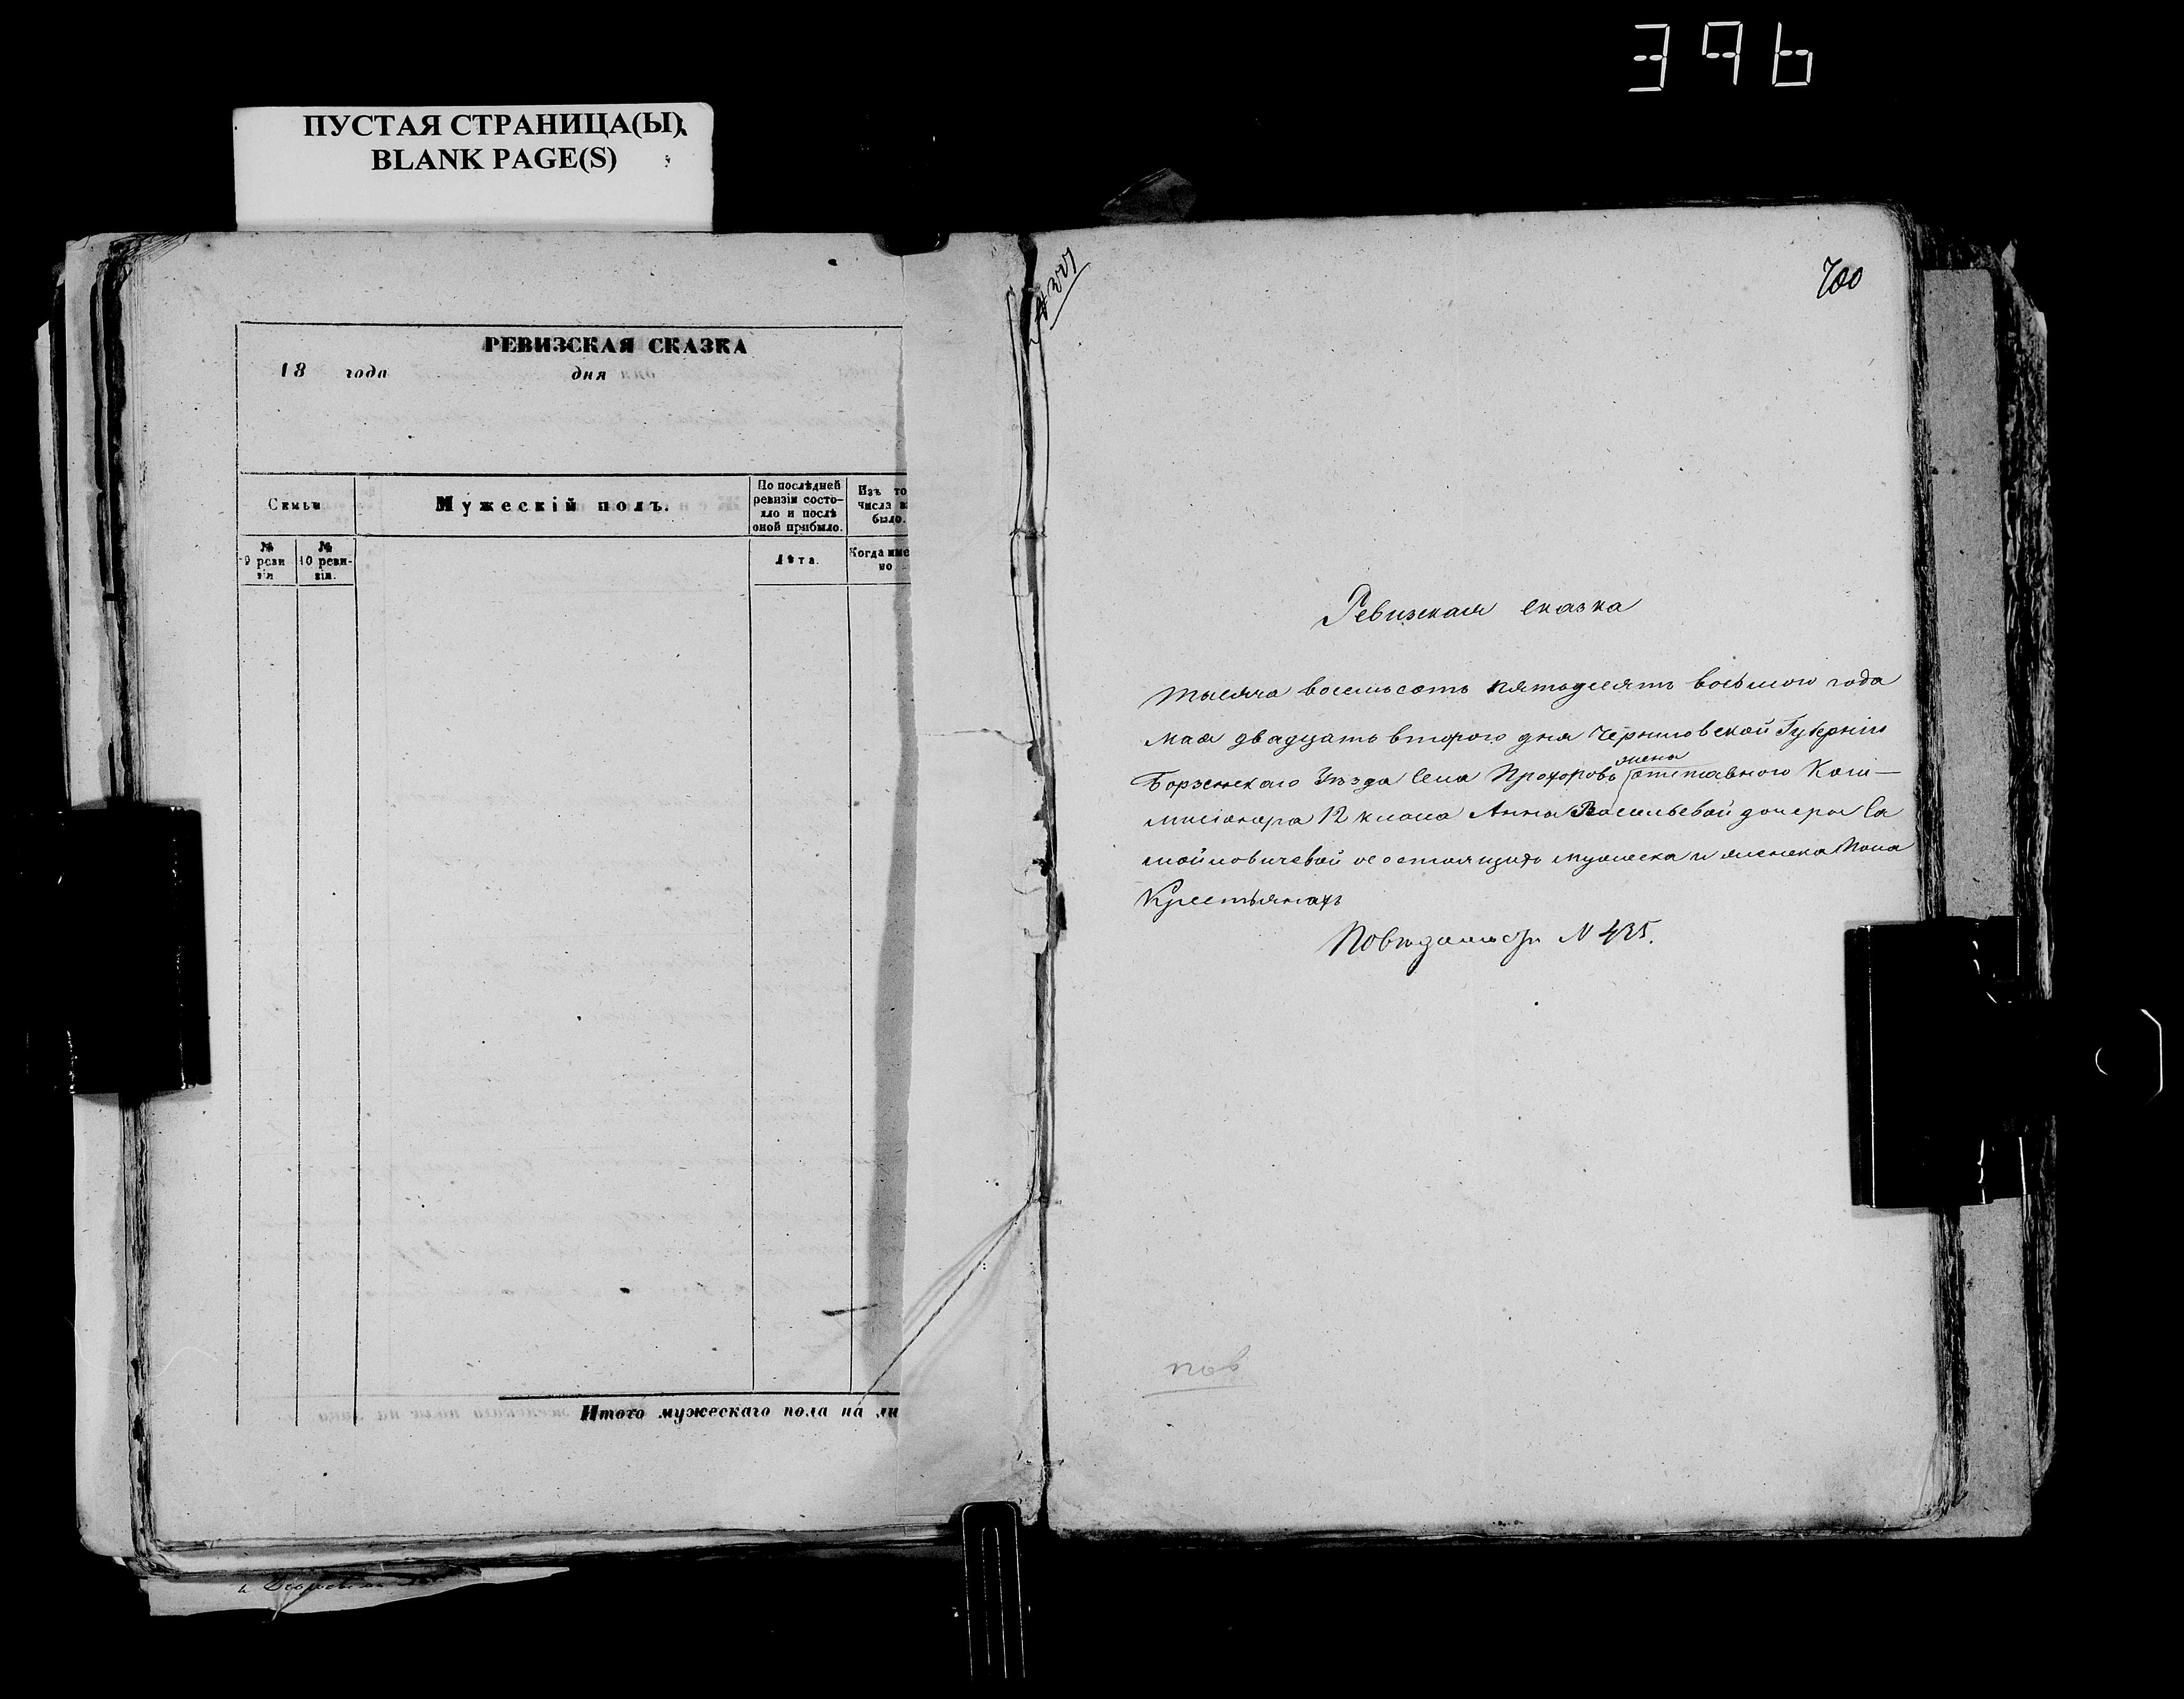 396
ПУСТАЯ СТРАНИЦА(Ы)
BLANK PAGE(S)
РЕВИЗСКАЯ СКАЗКА
18 года дня
Семьи
Мужескій полъ.
По послѣдней ревизіи состо-
яло и послѣ
оной прибыло.
Изъ то
числа в
было.
№
9 реви
зіи
№
10 реви-
зіи.
Лѣта.
Когда име
но
Итого мужескаго пола на ли
700
Ревизская сказка
Тысяча восемьсотъ пятьдесятъ восьмого года
мая двадцать второго дня Черниговской Губерніи
Борзенскаго Уѣзда села Прохоровъ жены отставного Ком—
мисіонера 12 класа Анны Васильевой дочери Са
мойловичевой о состоящихъ мужеска и женска пола
Крестьянахъ
По вѣдомости N 435.
пов